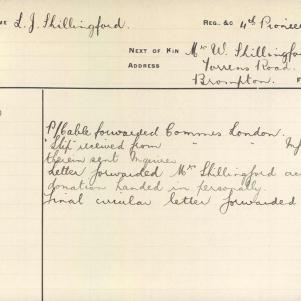 ME L. J. Shillingford. REG. &C 4th Pioneer
NEXT OF KIN Mr W. Shillingfor
ADDRESS Torrens Road.
Brompton. F
P/Cable forwarded Commrs London.
"Slip" received from " " Inf
therein sent Inquirer
Letter forwarded Mrs Shillingford ac
donation handed in personally.
Final circular letter forwarded